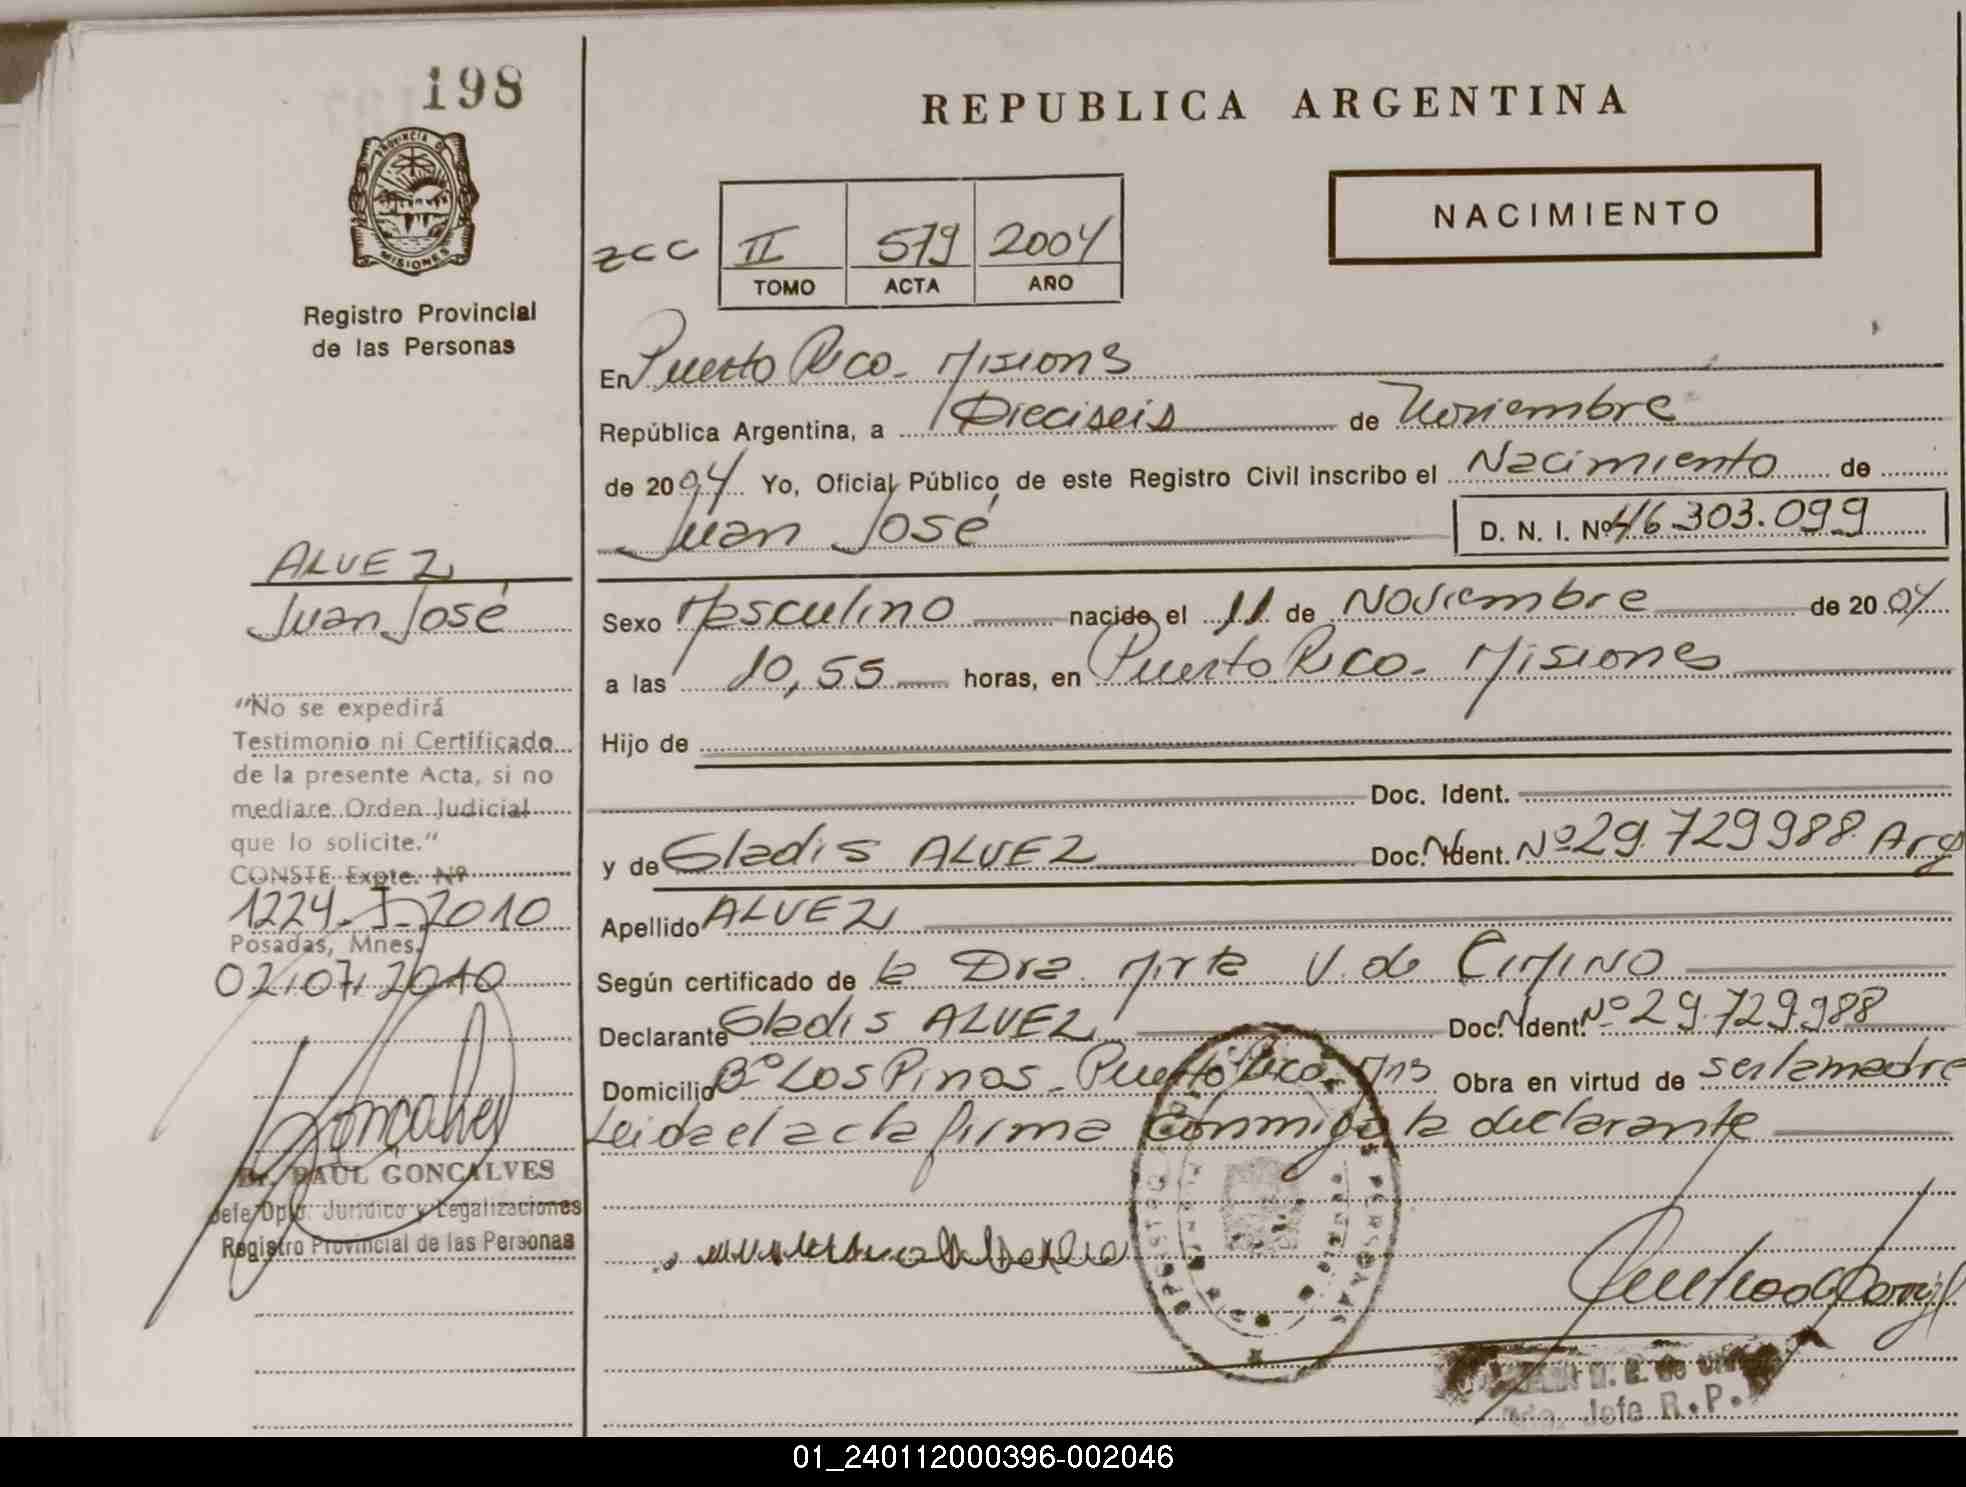 198
PROVINCIA DE
MISIONES
Registro Provincial
de las Personas
ALVEZ
Juan José
"No se expedirá
Testimonio ni Certificado
de la presente Acta, si no
mediare Orden Judicial
que lo solicite."
CONSTE Expte. Nº
1224-J-2010
Posadas, Mnes,
02/07/2010
Goncalves
Dr. RAUL GONCALVES
Jefe Dpto. Jurídico y Legalizaciones
Registro Provincial de las Personas
REPUBLICA ARGENTINA
NACIMIENTO
zcc II 579 2004
TOMO ACTA AÑO
En Puerto Rico - Misions
República Argentina, a Dieciseis de Noviembre
de 2004 Yo, Oficial Público de este Registro Civil inscribo el Nacimiento de
Juan José D. N. I. Nº 46.303.099
Sexo Masculino nacido el 11 de Noviembre de 2004
a las 10,55 horas, en Puerto Rico - Misiones
Hijo de
Doc. Ident.
y de Gladis ALVEZ Doc. Ident. Nº 29.729988 Arg
Apellido ALVEZ
Según certificado de la Dra. Mirta V. de CIMINO
Declarante Gladis ALVEZ Doc. Ident. Nº 29.729.988
Domicilio Bº Los Pinos - Puerto Rico - Mns Obra en virtud de ser la madre
Leida el acta firma conmigo la declarante
Jefe R.P.
01_240112000396-002046